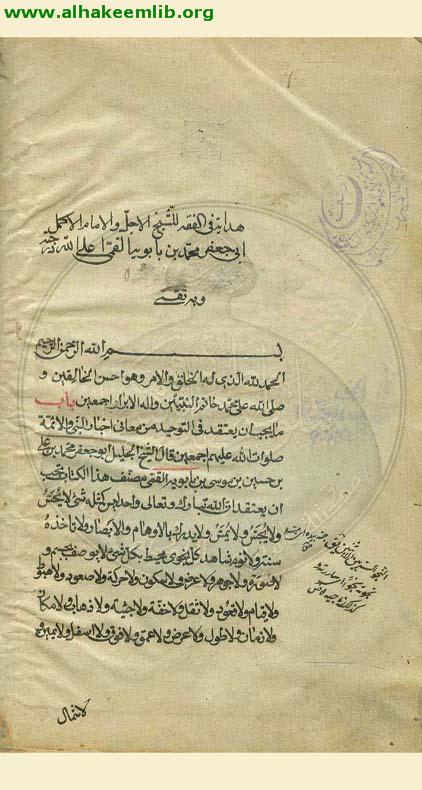 www.alhakeemlib.org
هداية فى الفقه للشيخ الاجل والامام الاكمل
ابى جعفر محمد بن بابويه القمى اعلى الله درجته
وبه ثقتى
بسم الله الرحمن الرحيم
الحمد لله الذى له الخلق والامر وهو احسن الخالقين و
صلى الله على محمد خاتم النبيين واله الابرار اجمعين باب
ما يجب ان يعتقد فى التوحيد من معانى اخبار النبى والائمة
صلوات الله عليهم اجمعين قال الشيخ الجليل ابو جعفر محمد بن على
بن حسين بن موسى بن بابويه القمى مصنف هذا الكتاب يجب
ان يعتقد ان الله تبارك وتعالى واحد ليس كمثله شئ لا يحد
ولا يحس ولا يمس ولا يدرك بالاوهام والابصار ولا تاخذه
سنة ولا نوم شاهد كل نجوى محيط بكل شئ لا يوصف بجسم و
لا صورة ولا جوهر ولا عرض ولا سكون ولا حركة ولا صعود ولا هبوط
ولا قيام ولا قعود ولا ثقل ولا خفة ولا جيئة ولا ذهاب ولا مكان
ولا زمان ولا طول ولا عرض ولا عمق ولا فوق ولا اسفل ولا يمين و
لا شمال